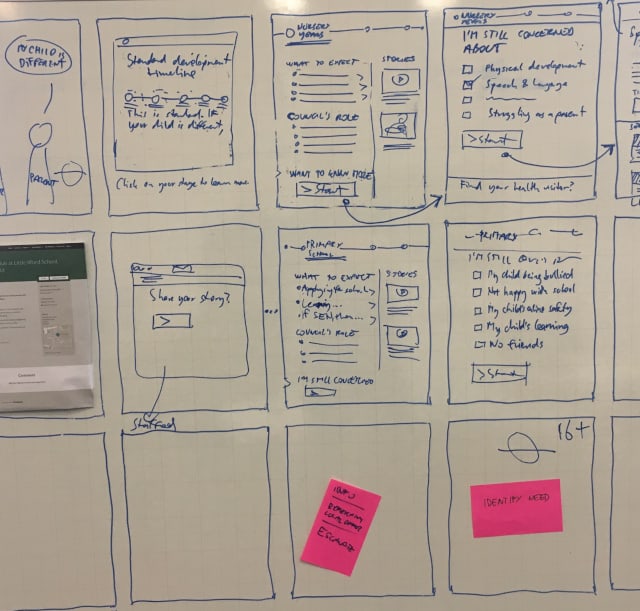 MY CHILD IS
DIFFERENT
PARENT
Standard development
timeline
This is standard. If
your child is different
Click on your stage to learn more
NURSERY
YEARS
WHAT TO EXPECT
STORIES
COUNCIL'S ROLE
WANT TO KNOW MORE
> Start
NURSERY
YEARS
I'M STILL CONCERNED
ABOUT
Physical development
Speech & Language
Struggling as a parent
> Start
Find your health visitor?
Share your story?
>
PRIMARY
SCHOOL
WHAT TO EXPECT
STORIES
Applying for school
If SEN then...
COUNCIL'S ROLE
I'M STILL CONCERNED
>
PRIMARY
I'M STILL
My child being bullied
Not happy with school
My child's online safety
My child's learning
No friends
> Start
INFO
ESCALATE
16+
IDENTIFY NEED